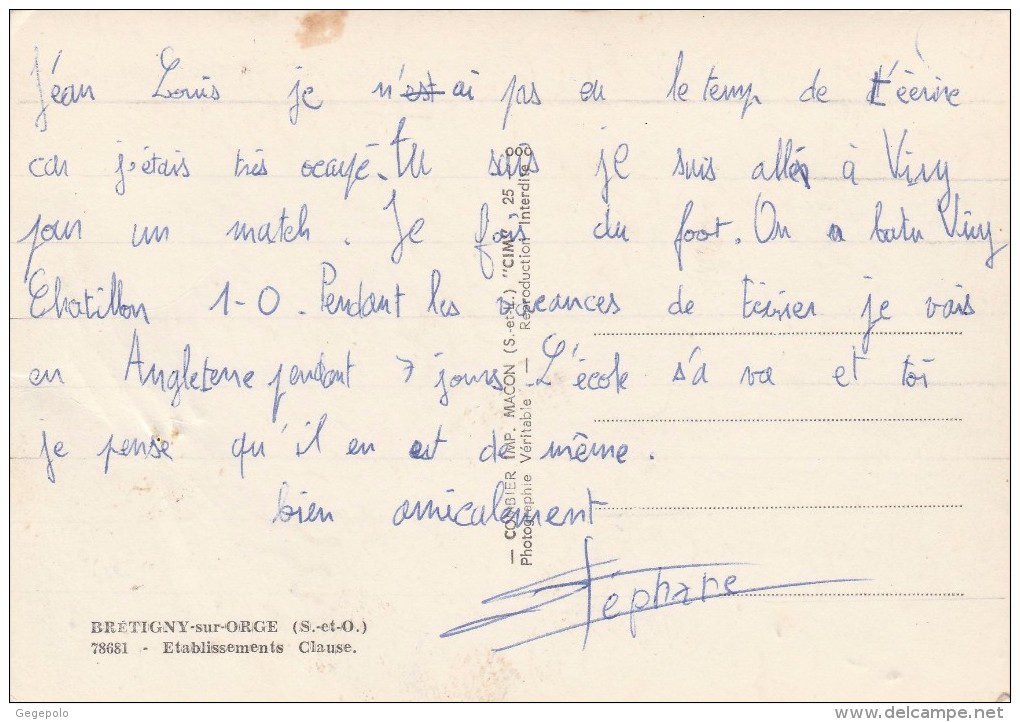 Jéan Louis je n'est ai pas eu le temp de t'éérire
car j'étais très occupé. Tu sais je suis allé à Viry
pour un match. Je fais du foot. On a batu Viry
Chatillon 1-0. Pendant les vacances de février je vais
en Angleterre pendant 7 jours. L'école s'a va et toi
je pense qu'il en est de même.
bien amicalement
Stéphane
— COMBIER IMP. MACON (S.-et-L.) "CIM" 25 000
Photographie Véritable — Reproduction Interdite
BRÉTIGNY-sur-ORGE (S.-et-O.)
78681 - Etablissements Clause.
Gegepolo
www.delcampe.net